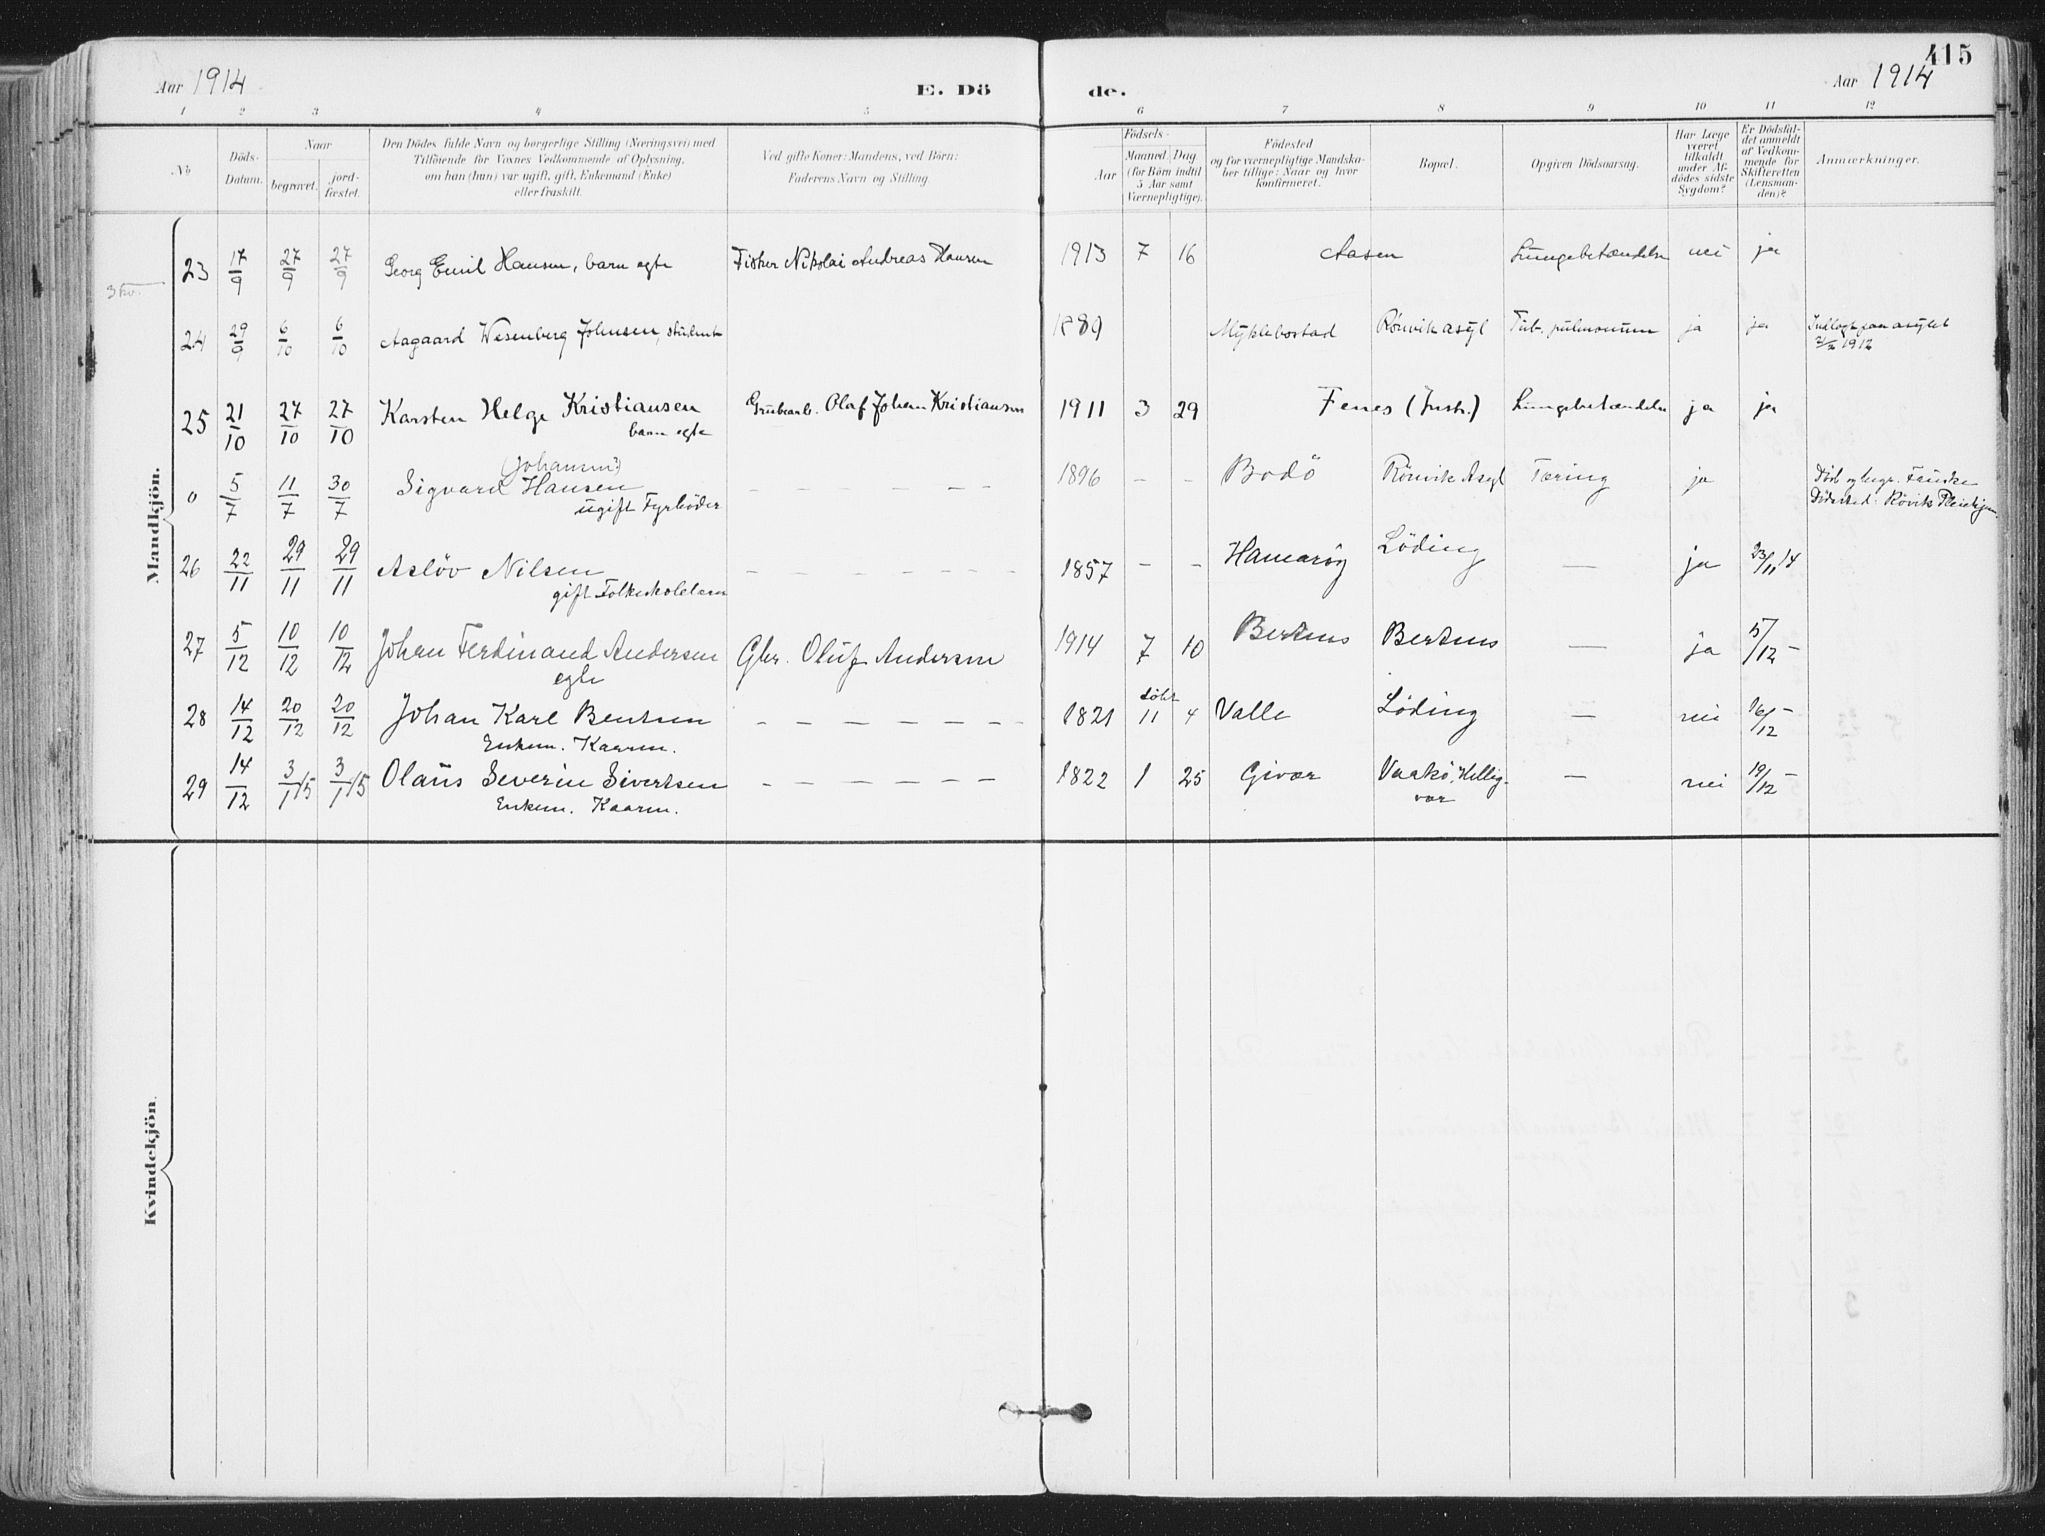 415
Aar 1914 E. Dö de. Aar 1914
1 2 3 4 5 6 7 8 9 10 11 12
No
Döds-Datum.
Naar
begravet.
jord-fæstet.
Den Dödes fulde Navn og borgerlige Stilling (Næringsvei) med
Tilföiende for Voxnes Vedkommende af Oplysning,
om han (hun) var ugift, gift, Enkemand (Enke)
eller fraskilt.
Ved gifte Koner: Mandens, ved Börn:
Faderens Navn og Stilling.
Födsels-
Aar
Maaned Dag
(for Börn indtil
5 Aar samt
Værnepligtige).
Födested
og for værnepligtige Mandska-
ber tillige: Naar og hvor
konfirmeret.
Bopæl.
Opgiven Dödsaarsag.
Har Læge
været
tilkaldt
under Af-
dödes sidste
Sygdom?
Er Dödsfal-
det anmeldt
af Vedkom-
mende for
Skifteretten
(Lensman-
den)?
Anmærkninger.
Mandkjön.
23 17/9 27/9 27/9 Georg Emil Hansen, barn egte Fisker Nikolai Andreas Hansen 1913 7 16 Aasen Lungebetændelse nei ja
24 29/9 6/10 6/10 Aagaard Wesenberg Johnsen, student 1889 Myklebostad Rönvik asyl Tub. pulmonum ja ja Indlagt paa asylet
1912
25 21/10 27/10 27/10 Karsten Helge Kristiansen Grubearb. Olaf Johan Kristiansen 1911 3 29 Fenes (Instr.) Lungebetændelse ja ja
barn egte
(Johansen?)
0 5/7 11/7 30/7 Sigvard Hansen - - - - - - 1896 - - Bodö Rönvik Asyl Tæring ja Död og begr. Fauske
ugift Fyrböder Dödssted: Rövik Pleiehjem.
26 22/11 29/11 29/11 Aslöv Nilsen - - - - - - - 1857 - - Hamaröy Löding — ja 23/11 14
gift Folkeskolelærer
27 5/12 10/12 10/12 Johan Ferdinand Andersen Gbr. Oluf Andersen 1914 7 10 Bertnes Bertnes — ja 5/12 -
egte
28 14/12 20/12 20/12 Johan Karl Bentsen - - - - - - - 1821 döbt 11 4 Valle Löding — nei 16/12 -
Enkem. Kaarm.
29 14/12 3/1 15 3/1 15 Olaus Severin Sivertsen - - - - - - 1822 1 25 Givær Vaakö, Hellig-
vær — nei 19/12 -
Enkem. Kaarm.
Kvindekjön.